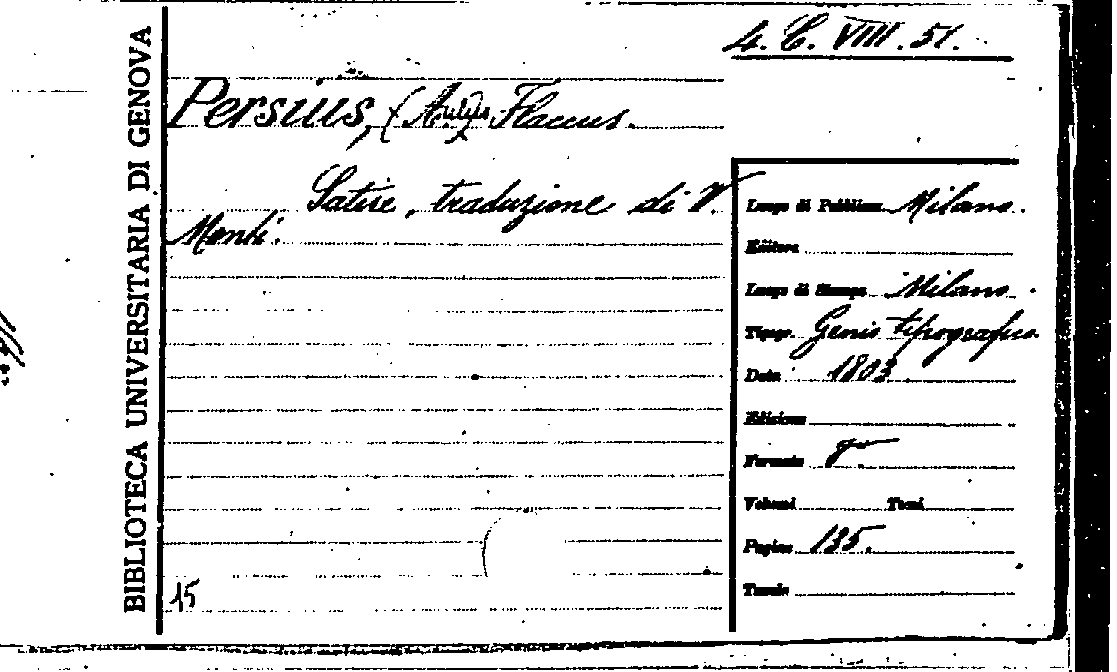 BIBLIOTECA UNIVERSITARIA DI GENOVA
4. C. VIII. 51.
Persius, (Aulus Flaccus.
Satire, traduzione di V.
Monti.
Luogo di Pubblicaz. Milano.
Editore
Luogo di Stampa Milano.
Tipogr. Genio tipografico
Data 1803
Edizione
Formato 8°.
Volumi Tomi
Pagine 135.
Tavole
15